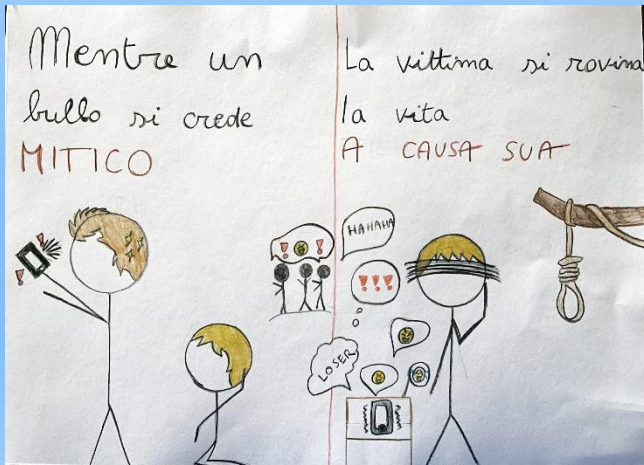 Mentre un
bullo si crede
MITICO
La vittima si rovina
la vita
A CAUSA SUA
HAHAHA
!!!
LOSER